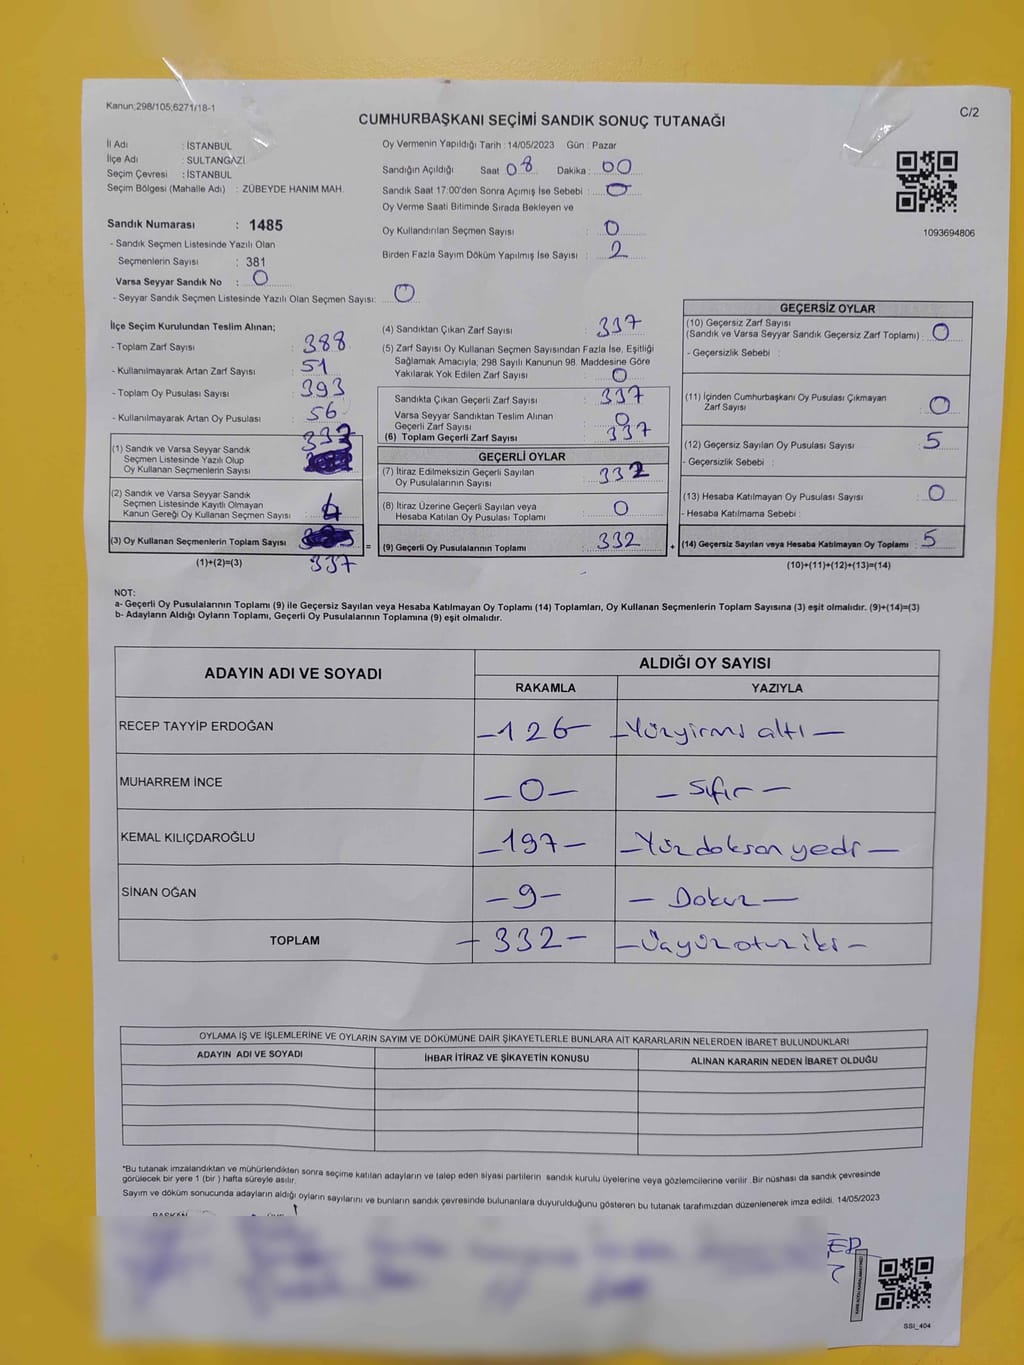 Kanun;298/105;6271/18-1
C/2
CUMHURBAŞKANI SEÇİMİ SANDIK SONUÇ TUTANAĞI
İl Adı : İSTANBUL
İlçe Adı : SULTANGAZİ
Seçim Çevresi : İSTANBUL
Seçim Bölgesi (Mahalle Adı) : ZÜBEYDE HANIM MAH.
Sandık Numarası : 1485
- Sandık Seçmen Listesinde Yazılı Olan
Seçmenlerin Sayısı : 381
Varsa Seyyar Sandık No : 0
- Seyyar Sandık Seçmen Listesinde Yazılı Olan Seçmen Sayısı: 0
Oy Vermenin Yapıldığı Tarih : 14/05/2023 Gün : Pazar
Sandığın Açıldığı Saat 08 Dakika : 00
Sandık Saat 17:00'den Sonra Açımış İse Sebebi : 0
Oy Verme Saati Bitiminde Sırada Bekleyen ve
Oy Kullandırılan Seçmen Sayısı : 0
Birden Fazla Sayım Döküm Yapılmış İse Sayısı : 2
1093694806
İlçe Seçim Kurulundan Teslim Alınan;
- Toplam Zarf Sayısı : 388
- Kullanılmayarak Artan Zarf Sayısı : 51
- Toplam Oy Pusulası Sayısı : 393
- Kullanılmayarak Artan Oy Pusulası : 56
337
(1) Sandık ve Varsa Seyyar Sandık
Seçmen Listesinde Yazılı Olup
Oy Kullanan Seçmenlerin Sayısı :
(2) Sandık ve Varsa Seyyar Sandık
Seçmen Listesinde Kayıtlı Olmayan
Kanun Gereği Oy Kullanan Seçmen Sayısı :
(3) Oy Kullanan Seçmenlerin Toplam Sayısı :
(1)+(2)=(3) 337
(4) Sandıktan Çıkan Zarf Sayısı : 337
(5) Zarf Sayısı Oy Kullanan Seçmen Sayısından Fazla İse, Eşitliği
Sağlamak Amacıyla; 298 Sayılı Kanunun 98. Maddesine Göre
Yakılarak Yok Edilen Zarf Sayısı : 0
Sandıkta Çıkan Geçerli Zarf Sayısı : 337
Varsa Seyyar Sandıktan Teslim Alınan
Geçerli Zarf Sayısı : 0
(6) Toplam Geçerli Zarf Sayısı : 337
GEÇERLİ OYLAR
(7) İtiraz Edilmeksizin Geçerli Sayılan
Oy Pusulalarının Sayısı : 332
(8) İtiraz Üzerine Geçerli Sayılan veya
Hesaba Katılan Oy Pusulası Toplamı : 0
= (9) Geçerli Oy Pusulalarının Toplamı : 332 +
GEÇERSİZ OYLAR
(10) Geçersiz Zarf Sayısı
(Sandık ve Varsa Seyyar Sandık Geçersiz Zarf Toplamı) : 0
- Geçersizlik Sebebi :
(11) İçinden Cumhurbaşkanı Oy Pusulası Çıkmayan
Zarf Sayısı : 0
(12) Geçersiz Sayılan Oy Pusulası Sayısı : 5
- Geçersizlik Sebebi :
(13) Hesaba Katılmayan Oy Pusulası Sayısı : 0
- Hesaba Katılmama Sebebi :
(14) Geçersiz Sayılan veya Hesaba Katılmayan Oy Toplamı : 5
(10)+(11)+(12)+(13)=(14)
NOT:
a- Geçerli Oy Pusulalarının Toplamı (9) ile Geçersiz Sayılan veya Hesaba Katılmayan Oy Toplamı (14) Toplamları, Oy Kullanan Seçmenlerin Toplam Sayısına (3) eşit olmalıdır. (9)+(14)=(3)
b- Adayların Aldığı Oyların Toplamı, Geçerli Oy Pusulalarının Toplamına (9) eşit olmalıdır.
ADAYIN ADI VE SOYADI ALDIĞI OY SAYISI
RAKAMLA YAZIYLA
RECEP TAYYİP ERDOĞAN -126- -Yüzyirmi altı-
MUHARREM İNCE -0- -Sıfır-
KEMAL KILIÇDAROĞLU -197- -Yüz doksan yedi-
SİNAN OĞAN -9- -Dokuz-
TOPLAM -332- -Üçyüzotuziki-
OYLAMA İŞ VE İŞLEMLERİNE VE OYLARIN SAYIM VE DÖKÜMÜNE DAİR ŞİKAYETLERLE BUNLARA AİT KARARLARIN NELERDEN İBARET BULUNDUKLARI
ADAYIN ADI VE SOYADI İHBAR İTİRAZ VE ŞİKAYETİN KONUSU ALINAN KARARIN NEDEN İBARET OLDUĞU
*Bu tutanak imzalandıktan ve mühürlendikten sonra seçime katılan adayların ve talep eden siyasi partilerin sandık kurulu üyelerine veya gözlemcilerine verilir. Bir nüshası da sandık çevresinde
görülecek bir yere 1 (bir) hafta süreyle asılır.
Sayım ve döküm sonucunda adayların aldığı oyların sayılarını ve bunların sandık çevresinde bulunanlara duyurulduğunu gösteren bu tutanak tarafımızdan düzenlenerek imza edildi. 14/05/2023
BAŞKAN
SSI_404